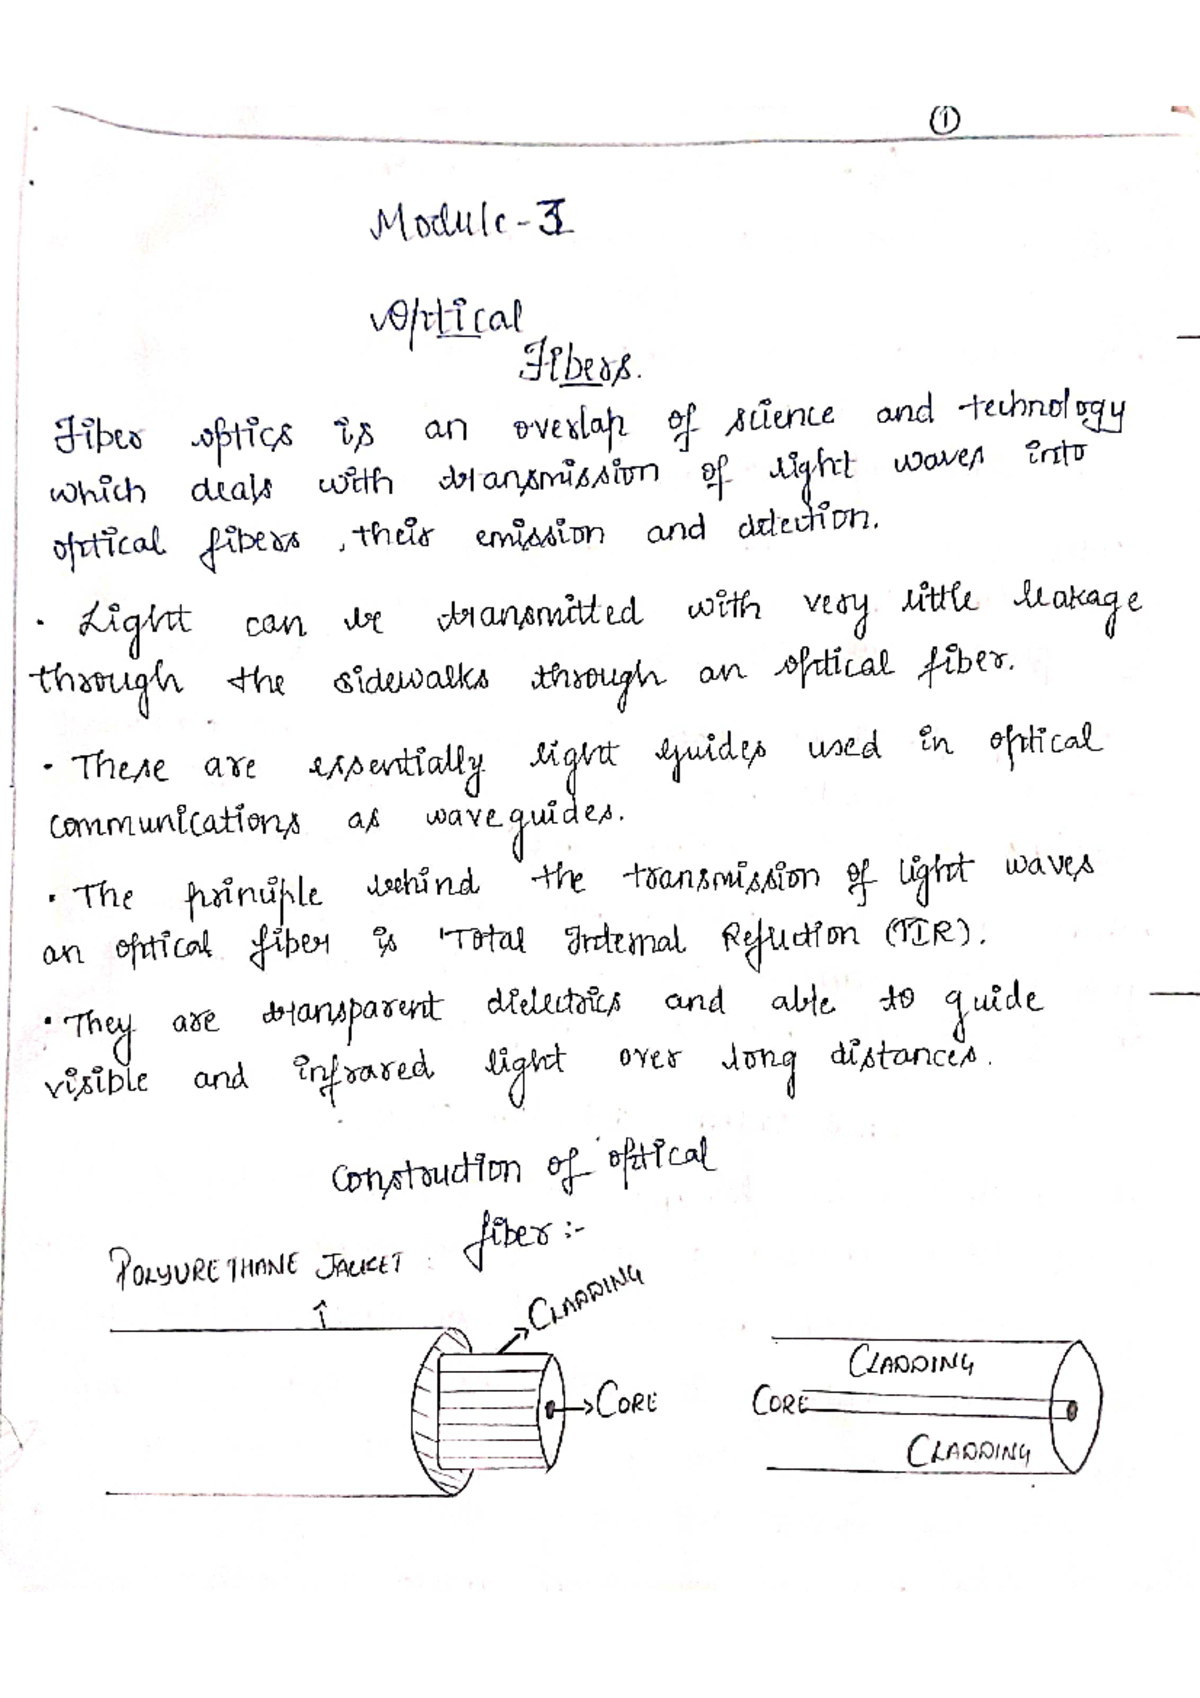 1
Module-3
Optical
Fibers.
Fiber optics is an overlap of science and technology
which deals with transmission of light waves into
optical fibers, their emission and detection.
· Light can be transmitted with very little leakage
through the sidewalks through an optical fiber.
· These are essentially light guides used in optical
communications as waveguides.
· The principle behind the transmission of light waves
an optical fiber is 'Total Internal Reflection (TIR).
· They are transparent dielectrics and able to guide
visible and infrared light over long distances.
Construction of optical
fiber :-
POLYURETHANE JACKET
CLADDING
CORE
CLADDING
CORE
CLADDING